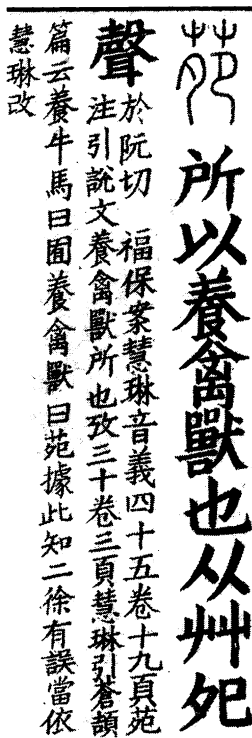 苑 所以養禽獸也从艸夗
聲 於阮切 福保案慧琳音義四十五卷十九頁苑
注引說文養禽獸所也攷三十卷三頁慧琳引蒼頡
篇云養牛馬曰囿養禽獸曰苑據此知二徐有誤當依
慧琳改